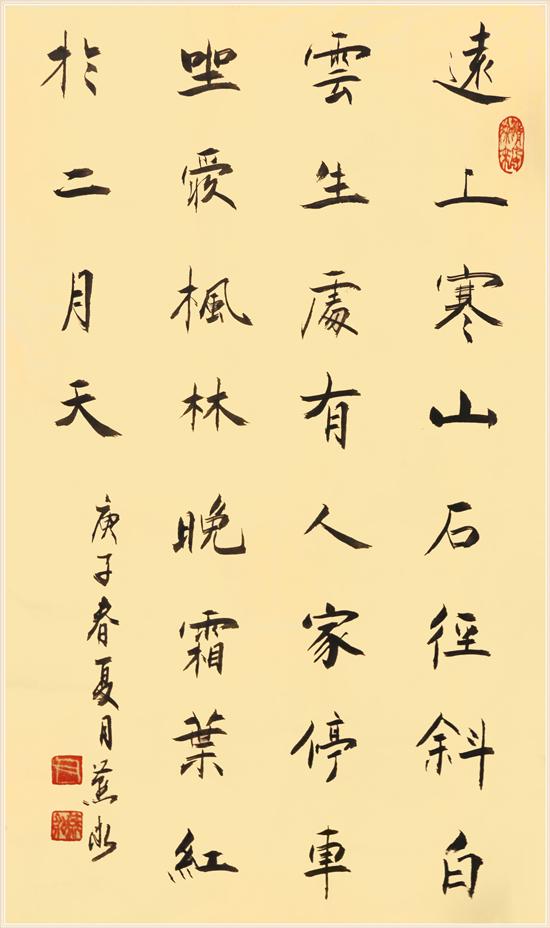 遠上寒山石徑斜白
雲生處有人家停車
坐愛楓林晚霜葉紅
於二月天
庚子春夏月蕉水